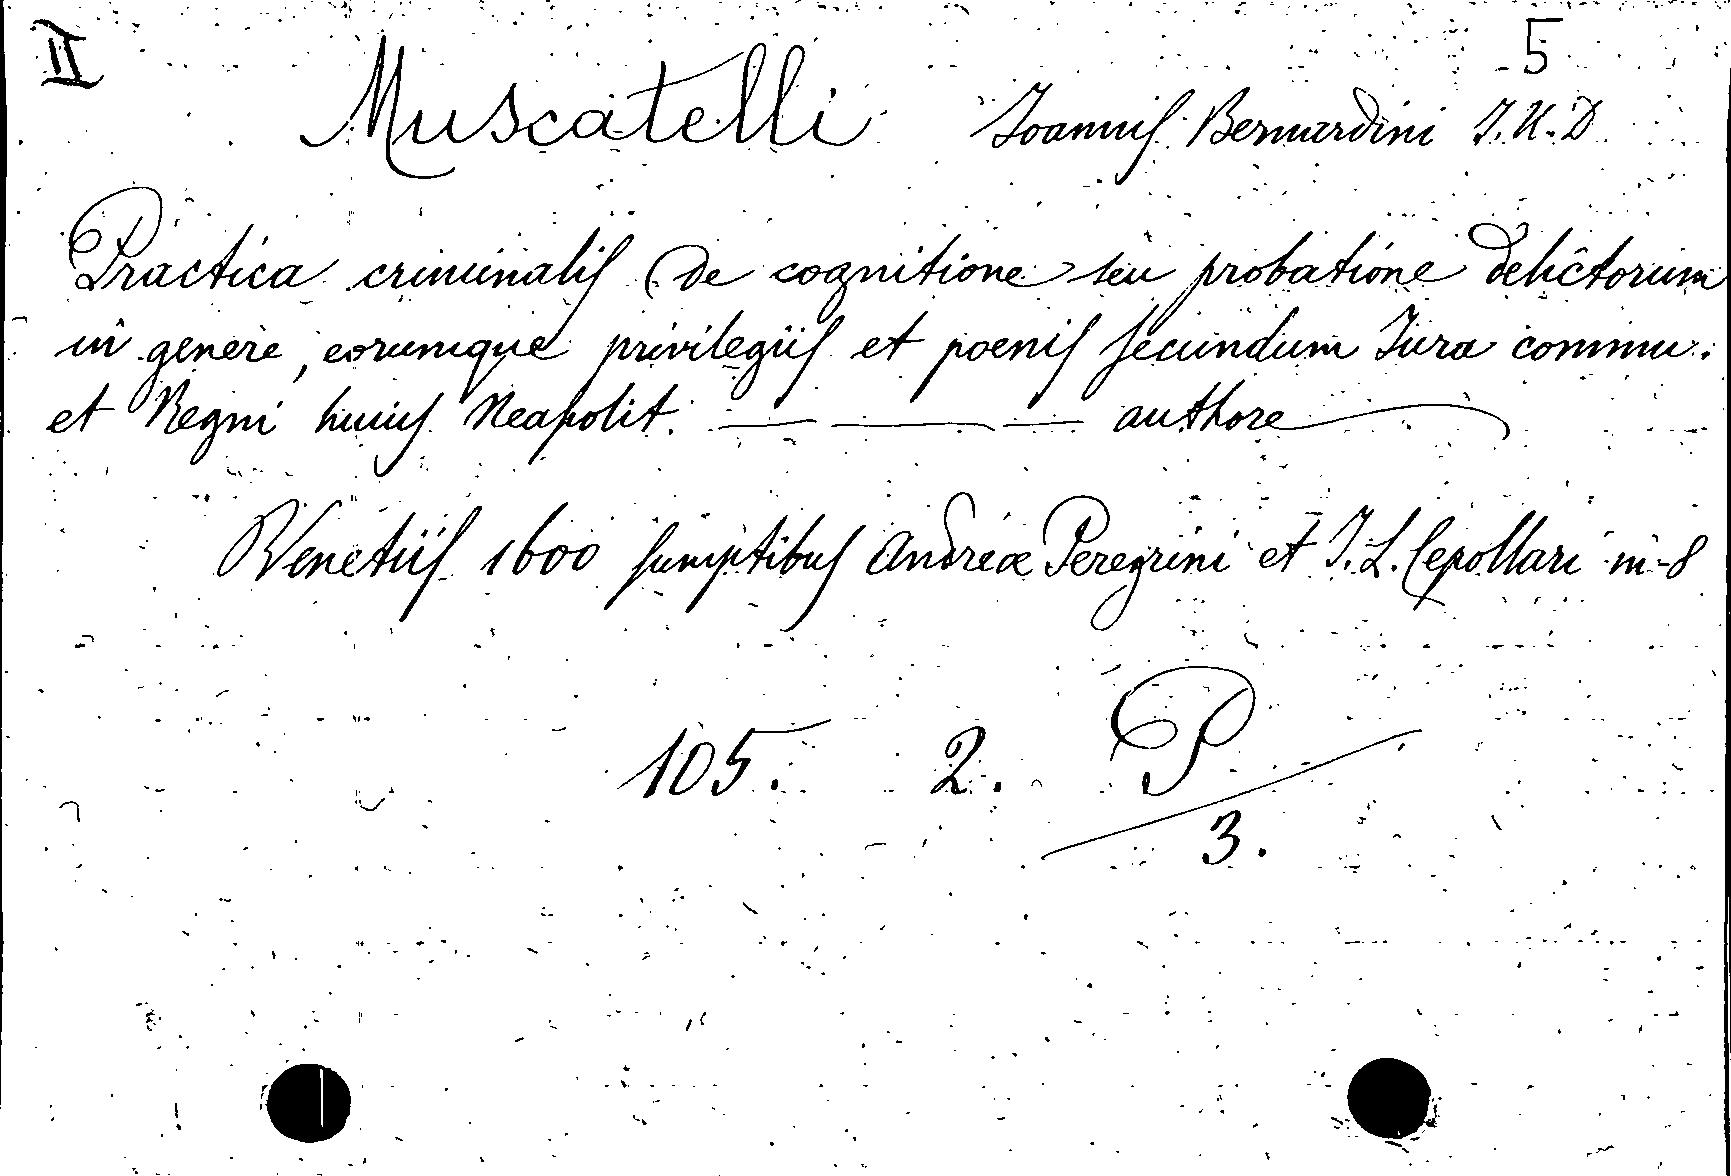 II 5
Muscatelli Joannis Bernardini J.U.D
Practica criminalis (de cognitione seu probatione delictorum
in genere, eorumque privilegiis et poenis secundum Jura commu.
et Regni huius Neapolit. — — — authore
Venetiis 1600 sumptibus Andreæ Peregrini et J. L. Cepollari in-8
105. 2. P
3.